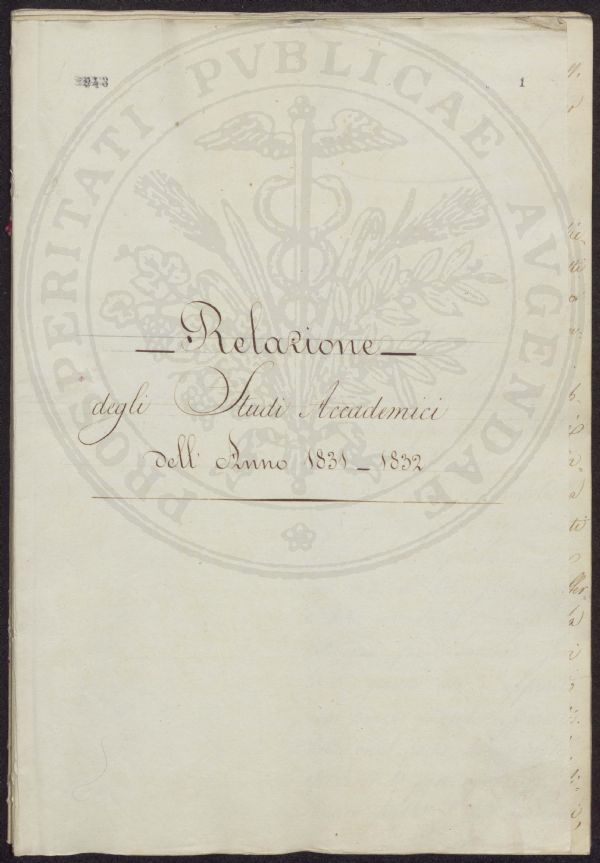 1
PROSPERITATI PVBLICAE AVGENDAE
— Relazione —
degli Studi Accademici
dell' Anno 1831 - 1832